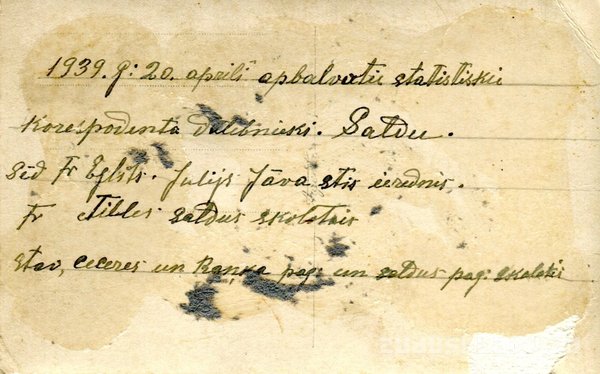 1939. g: 20. aprilī apbalvotie statistiskie
korespodenta dalibnieki. Saldū.
sēd Fr Eglīts. Julijs Jāva stis ierednis.
Fr Tilles saldus skolotais
stāv, ceceres un Raņķa pag: un saldus pag: skolotāi